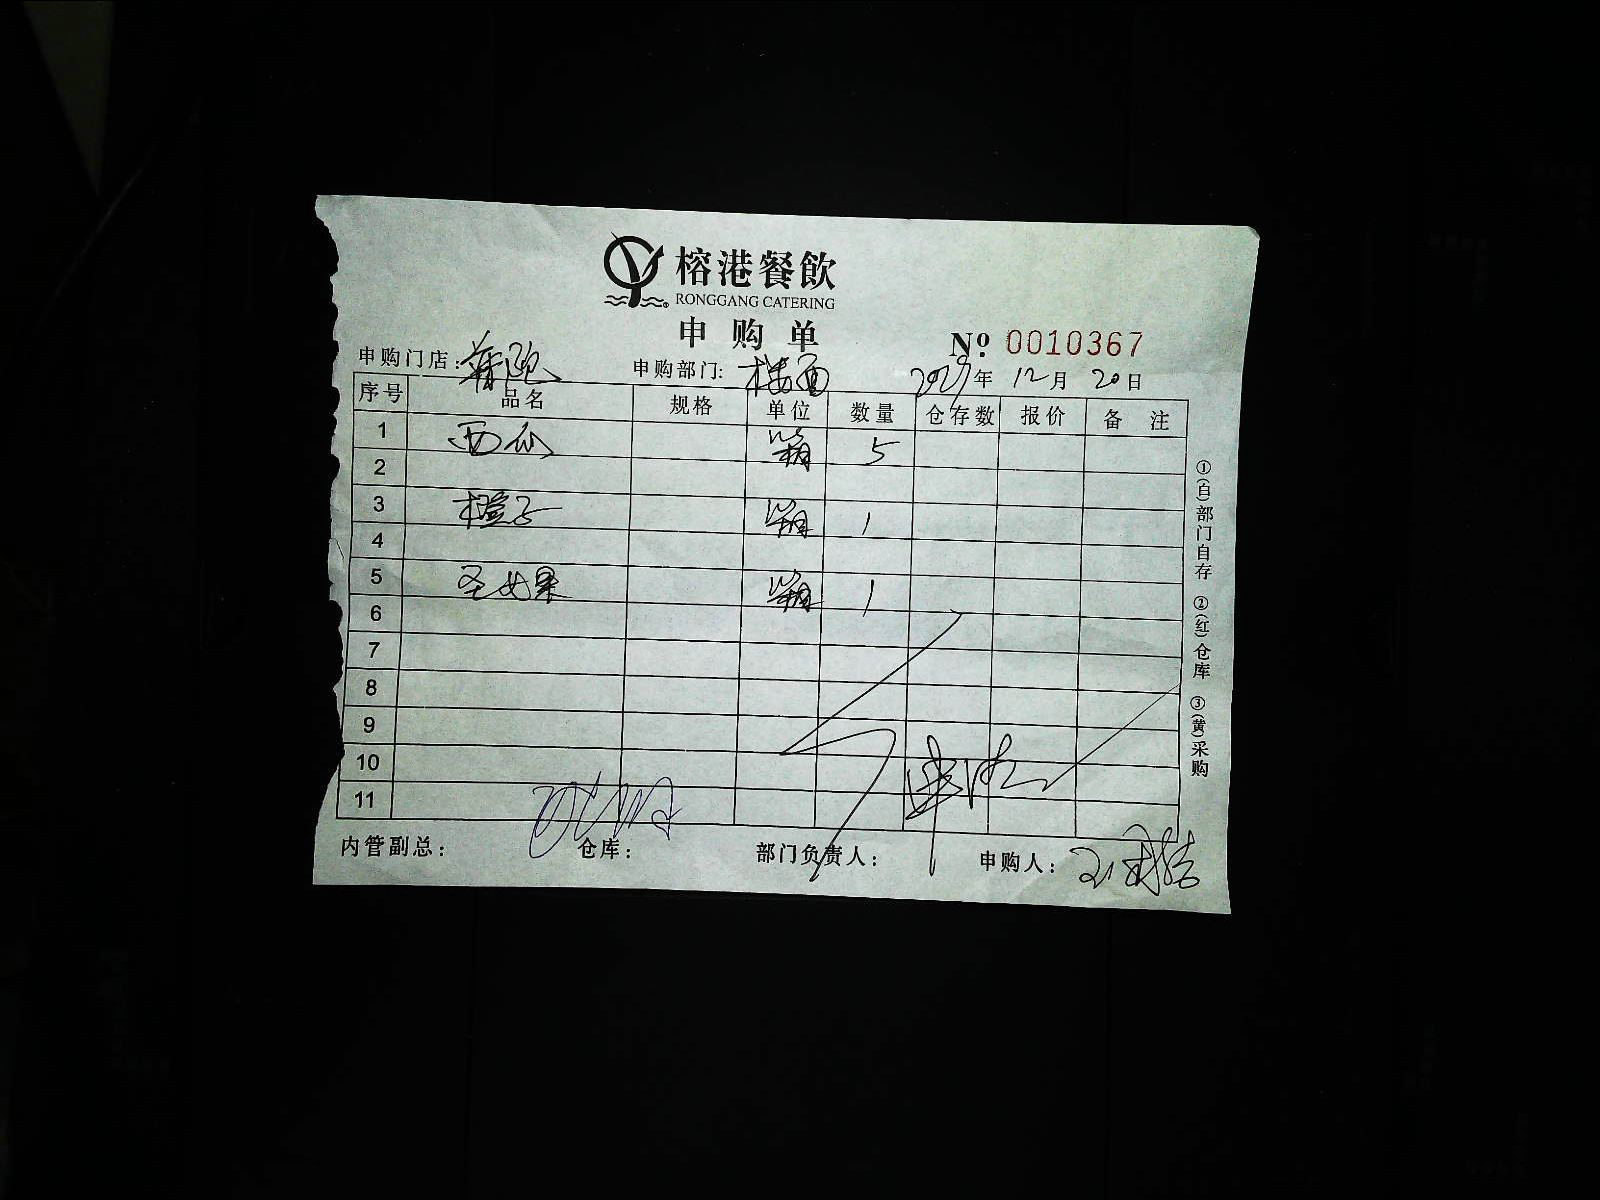 榕港餐飲
RONGGANG CATERING
申购单
No 0010367
申购门店： 申购部门: 楼面 年 12月 20日
序号 品名 规格 单位 数量 仓存数 报价 备注
1 西瓜 箱 5
2
3 橙子 箱 1
4
5 圣女果 箱 1
6
7
8
9
10
11
内管副总： 仓库： 部门负责人： 申购人：
①(白)部门自存 ②(红)仓库 ③(黄)采购